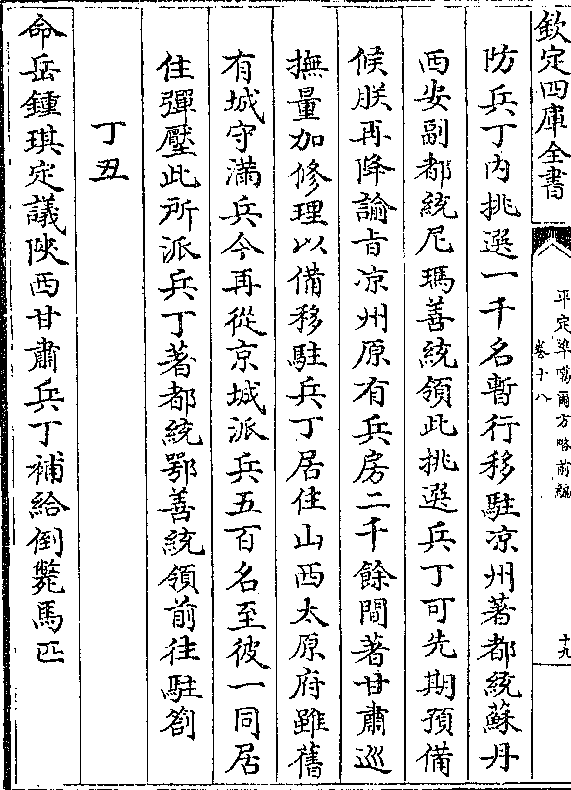 欽定四庫全書
平定準噶爾方略前編
卷十八
十九
防兵丁内挑選一千名暫行移駐凉州著都統蘇丹
西安副都統尼瑪善統領此挑選兵丁可先期預備
候朕再降諭旨凉州原有兵房二千餘間著甘肅巡
撫量加修理以備移駐兵丁居住山西太原府雖舊
有城守滿兵今再從京城派兵五百名至彼一同居
住彈壓此所派兵丁著都統鄂善統領前往駐劄
丁丑
命岳鍾琪定議陜西甘肅兵丁補給倒斃馬匹